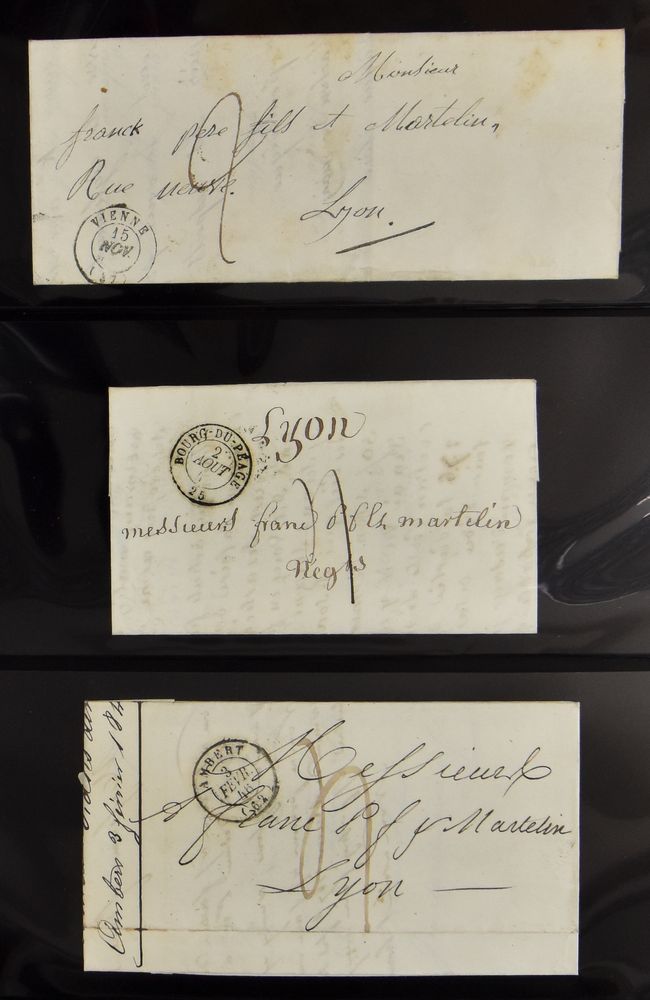 Monsieur
franck pere fils et Martelin,
Rue neuve.
Lyon.
VIENNE
15
NOV.
(37)
Lyon
BOURG-DU-PÉAGE
2
AOUT
25
messieurs franc p fils martelin
Negts
Ambert 3 février 184
AMBERT
3
FEVR
46
(62)
Messieurs
franc P f & Martelin
Lyon